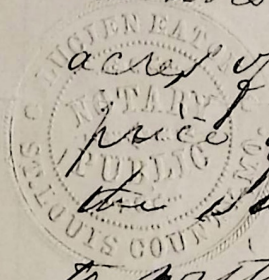 LUCIEN EATON
NOTARY
PUBLIC
ST LOUIS COUNTY MO.
acres of
price
the